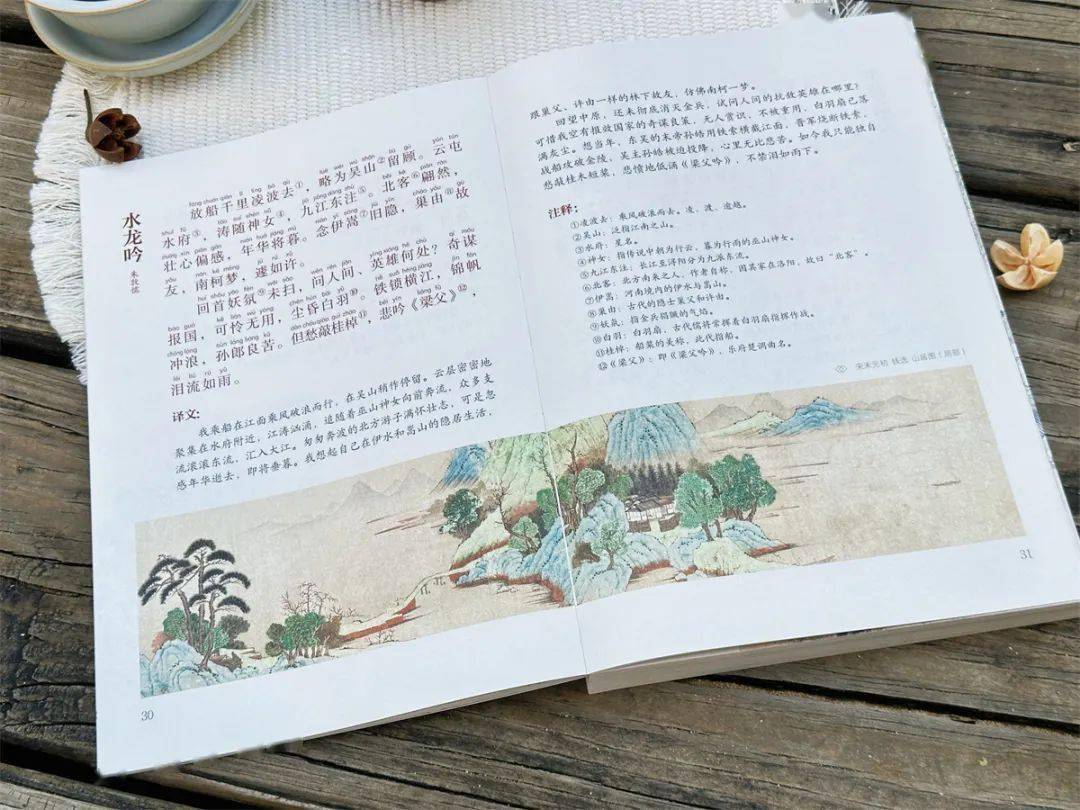 水龙吟
朱敦儒
放船千里凌波去①，略为吴山②留顾。云屯
水府③，涛随神女④，九江东注⑤。北客⑥翩然，
壮心偏感，年华将暮。念伊嵩⑦旧隐，巢由⑧故
友，南柯梦，遽如许。
回首妖氛⑨未扫，问人间、英雄何处？奇谋
报国，可怜无用，尘昏白羽⑩。铁锁横江，锦帆
冲浪，孙郎良苦。但愁敲桂棹⑪，悲吟《梁父》⑫，
泪流如雨。
译文：
我乘船在江面乘风破浪而行，在吴山稍作停留。云层密密地
聚集在水府附近，江涛汹涌，追随着巫山神女向前奔流，众多支
流滚滚东流，汇入大江。匆匆奔波的北方游子满怀壮志，可是忽
感年华逝去，即将垂暮。我想起自己在伊水和嵩山的隐居生活，
30
跟巢父、许由一样的林下故友，仿佛南柯一梦。
回望中原，还未彻底消灭金兵，试问人间的抗敌英雄在哪里？
可惜我空有报效国家的奇谋良策，无人赏识，不被重用，白羽扇已落
满灰尘。想当年，东吴的末帝孙皓用铁索横截江面，晋军烧断铁索，
战船攻破金陵，吴主孙皓被迫投降，心里无比悲苦。如今我只能独自
愁敲桂木短桨，悲愤地低诵《梁父吟》，不禁泪如雨下。
注释：
①凌波去：乘风破浪而去。凌，渡、逾越。
②吴山：泛指江南之山。
③水府：星名。
④神女：指传说中朝为行云、暮为行雨的巫山神女。
⑤九江东注：长江至浔阳分为九派东流。
⑥北客：北方南来之人，作者自称，因其家在洛阳，故曰“北客”。
⑦伊嵩：河南境内的伊水与嵩山。
⑧巢由：古代的隐士巢父和许由。
⑨妖氛：指金兵猖獗的气焰。
⑩白羽：白羽扇，古代儒将常挥着白羽扇指挥作战。
⑪桂棹：船桨的美称，此代指船。
⑫《梁父》：即《梁父吟》，乐府楚调曲名。
宋末元初 钱选 山居图（局部）
31